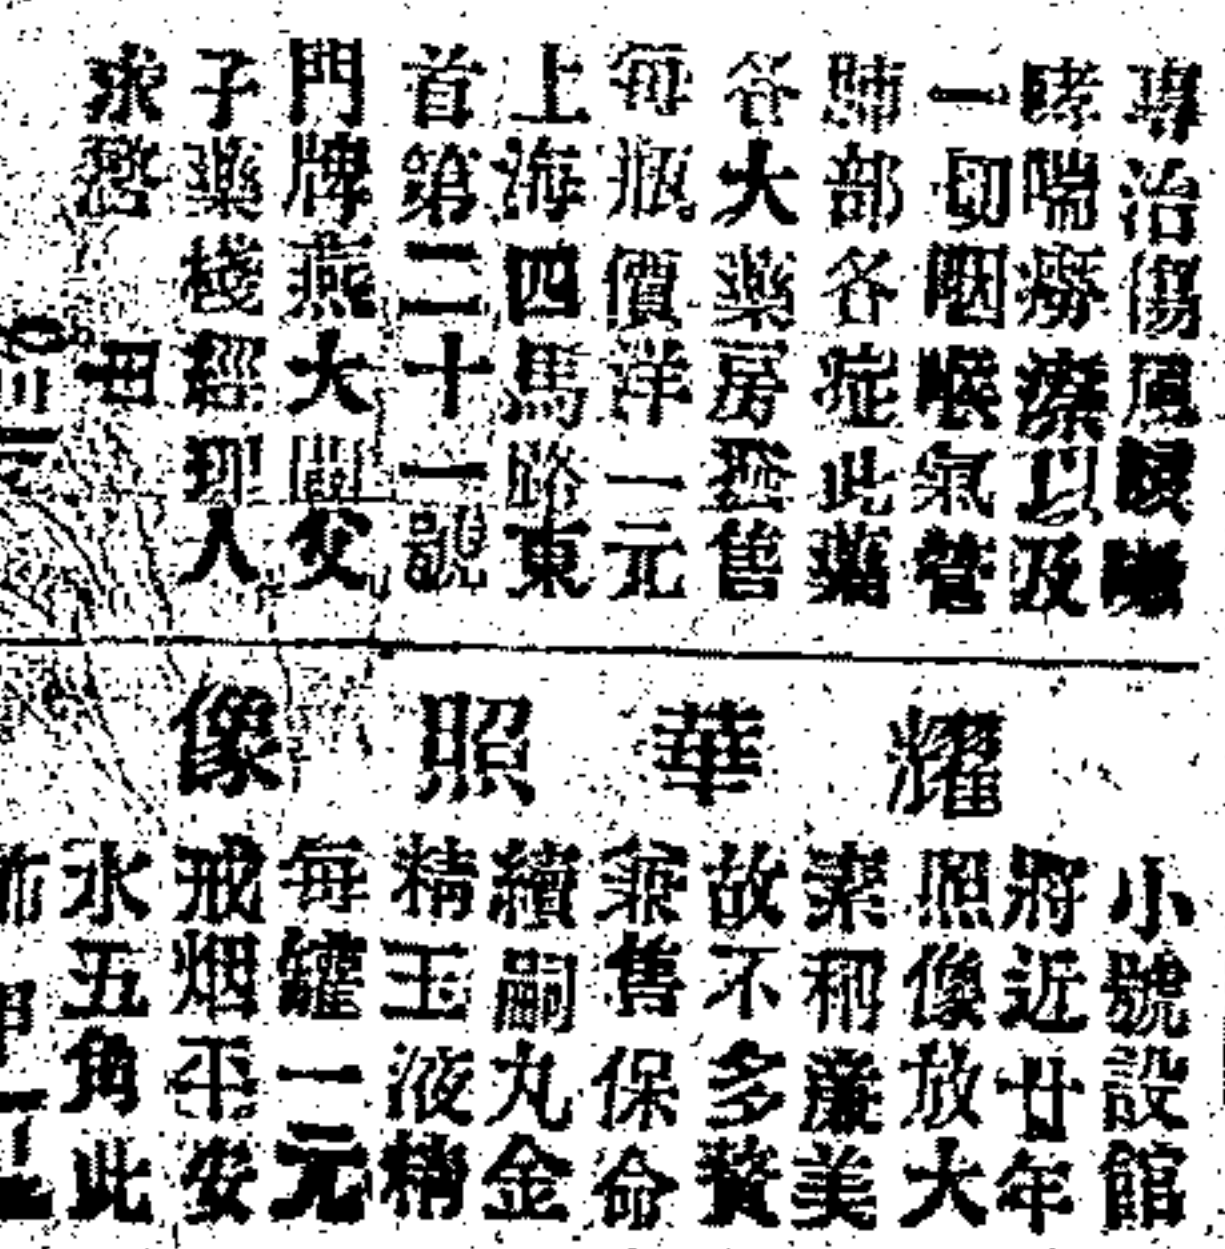 專治傷風咳嗽
哮喘癆瘵以及
一切咽喉氣管
肺部各症此藥
各大藥房發售
每瓶價洋一元
上海四馬路東
首第二十一號
門牌燕大 父
子藥棧經理人
求 丑
耀華照像
小號設館
將近廿年
照像放大
素稱廉美
故不多贅
兼售保命
續嗣丸金
精玉液精
每罐一元
戒烟平安
水五角此